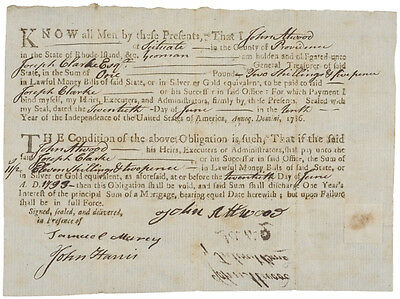 KNOW all Men by these Presents, That I John Atwood
of Scituate in the County of Providence
in the State of Rhode Island, &c. yeoman am holden and obligated unto
Joseph Clarke Esqr General Treasurer of said
State, in the Sum of One Pound Two Shillings & five pence
in Lawful Money Bills of said State, or in Silver or Gold equivalent, to be paid to said
Joseph Clarke or his Successor in said Office: For which Payment I
bind myself, my Heirs, Executors, and Administrators, firmly by these Presents. Sealed with
my Seal, dated the Twentieth Day of June in the Tenth
Year of the Independence of the United States of America, Annoq. Domini, 1786.
THE Condition of the above Obligation is such, That if the said
John Atwood his Heirs, Executors or Administrators, shall pay unto
the said Joseph Clarke or his Successor in said Office, the Sum of
Eleven Shillings & two pence in Lawful Money Bills of said State, or
in Silver or Gold equivalent, as aforesaid, at or before the twentieth Day of June
A. D. 1793 then this Obligation shall be void, and said Sum shall discharge One Year's
Interest of the principal Sum of a Mortgage, bearing equal Date herewith; but upon Failure
shall be in full Force.
Signed, sealed, and delivered,
in Presence of
John Atwood
Samuel
John Harris